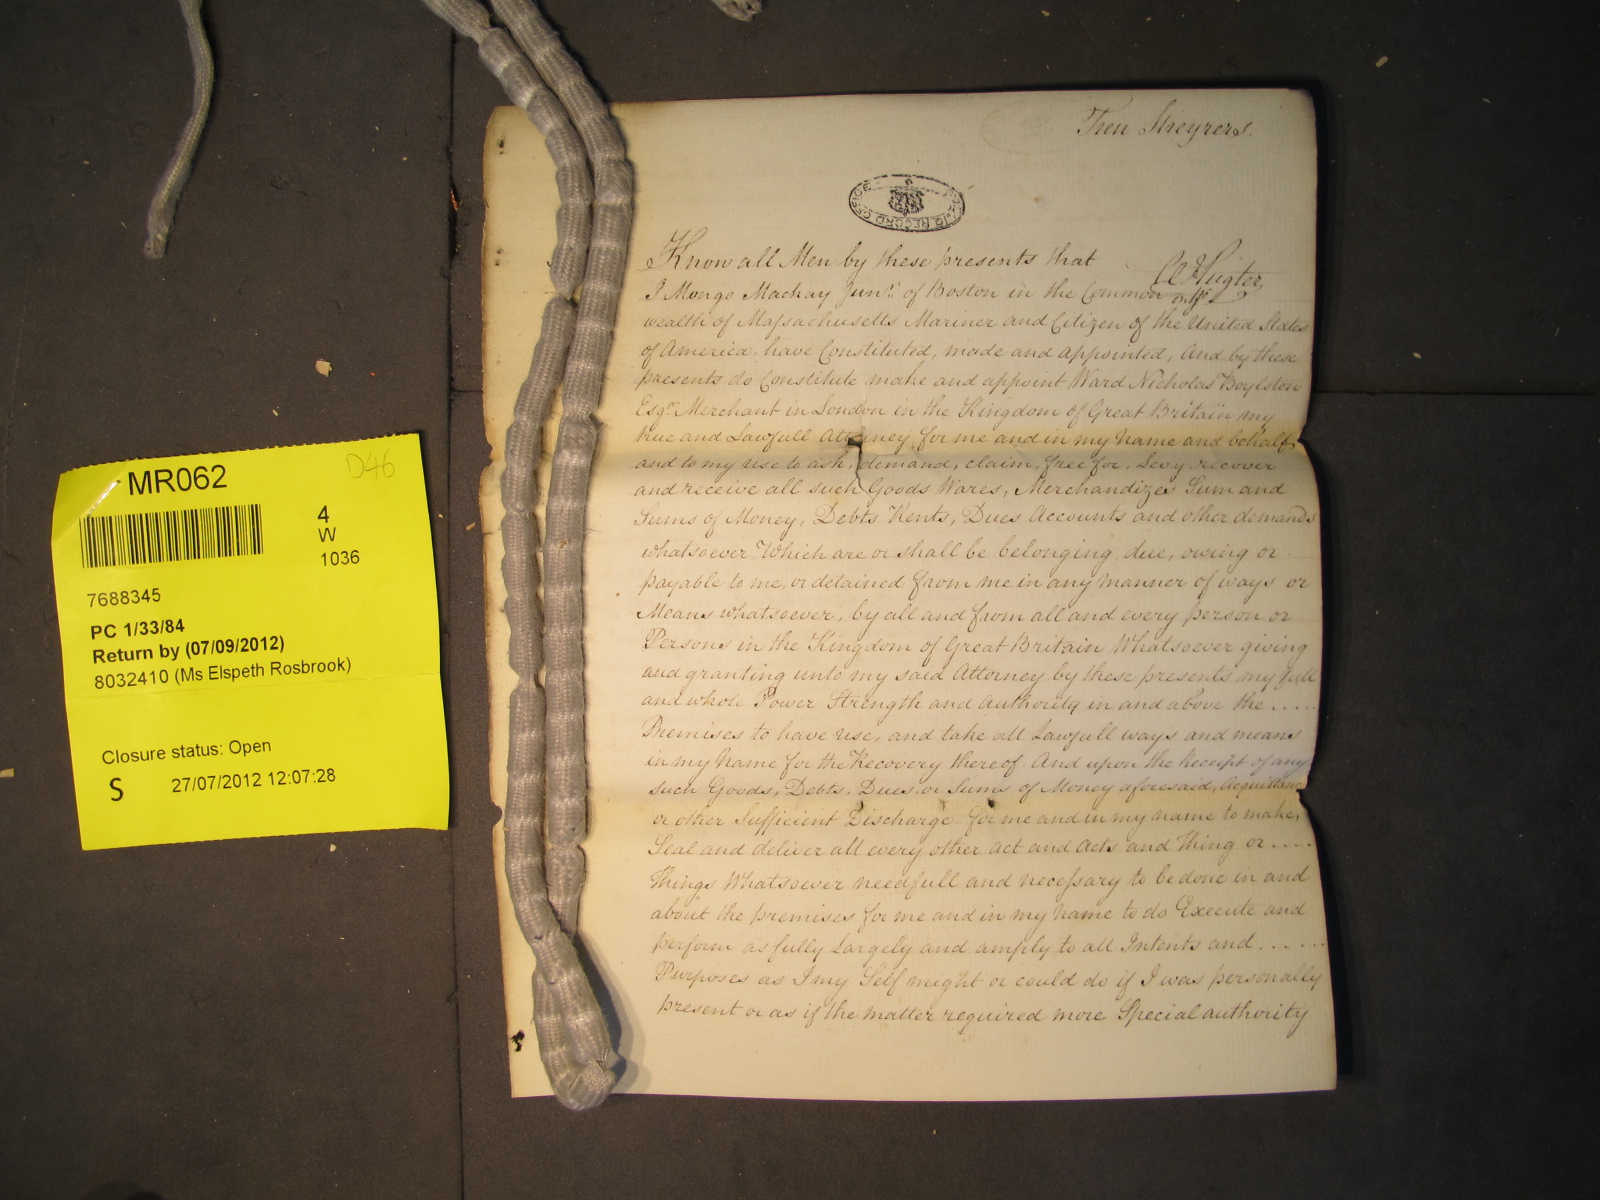 MR062
D46
4
W
1036
7688345
PC 1/33/84
Return by (07/09/2012)
8032410 (Ms Elspeth Rosbrook)
Closure status: Open
S 27/07/2012 12:07:28
RECORD OFFICE
Know all Men by these presents that
I Mongo Mackay Junr. of Boston in the Common
wealth of Massachusetts Mariner and Citizen of the United States
of America, have Constituted, made and appointed, And by these
presents do Constitute make and appoint Ward Nicholas Boylston
Esqr. Merchant in London in the Kingdom of Great Britain my
true and Lawfull Attorney, for me and in my Name and behalf,
and to my use to ask, demand, claim, free for, Levy, recover
and receive all such Goods Wares, Merchandizes Sum and
Sums of Money, Debts Rents, Dues Accounts and other demands
whatsoever Which are or shall be belonging, due, owing or
payable to me, or detained from me in any Manner of ways or
Means whatsoever, by all and from all and every person or
Persons in the Kingdom of Great Britain Whatsoever giving
and granting unto my said Attorney by these presents, my full
and whole Power Strength and Authority in and above the .....
Premises to have use, and take all Lawfull ways and means
in my Name for the Recovery thereof. And upon the Receipt of any
such Goods, Debts, Dues or Sums of Money aforesaid, Acquittance
or other Sufficient Discharge for me and in my name to make,
Seal and deliver all every other act and Acts and thing or ....
things Whatsoever needfull and necessary to be done in and
about the premises for me and in my Name to do Execute and
perform as fully Largely and amply to all Intents and ......
Purposes as I my Self might or could do if I was personally
present or as if the matter required more Special authority